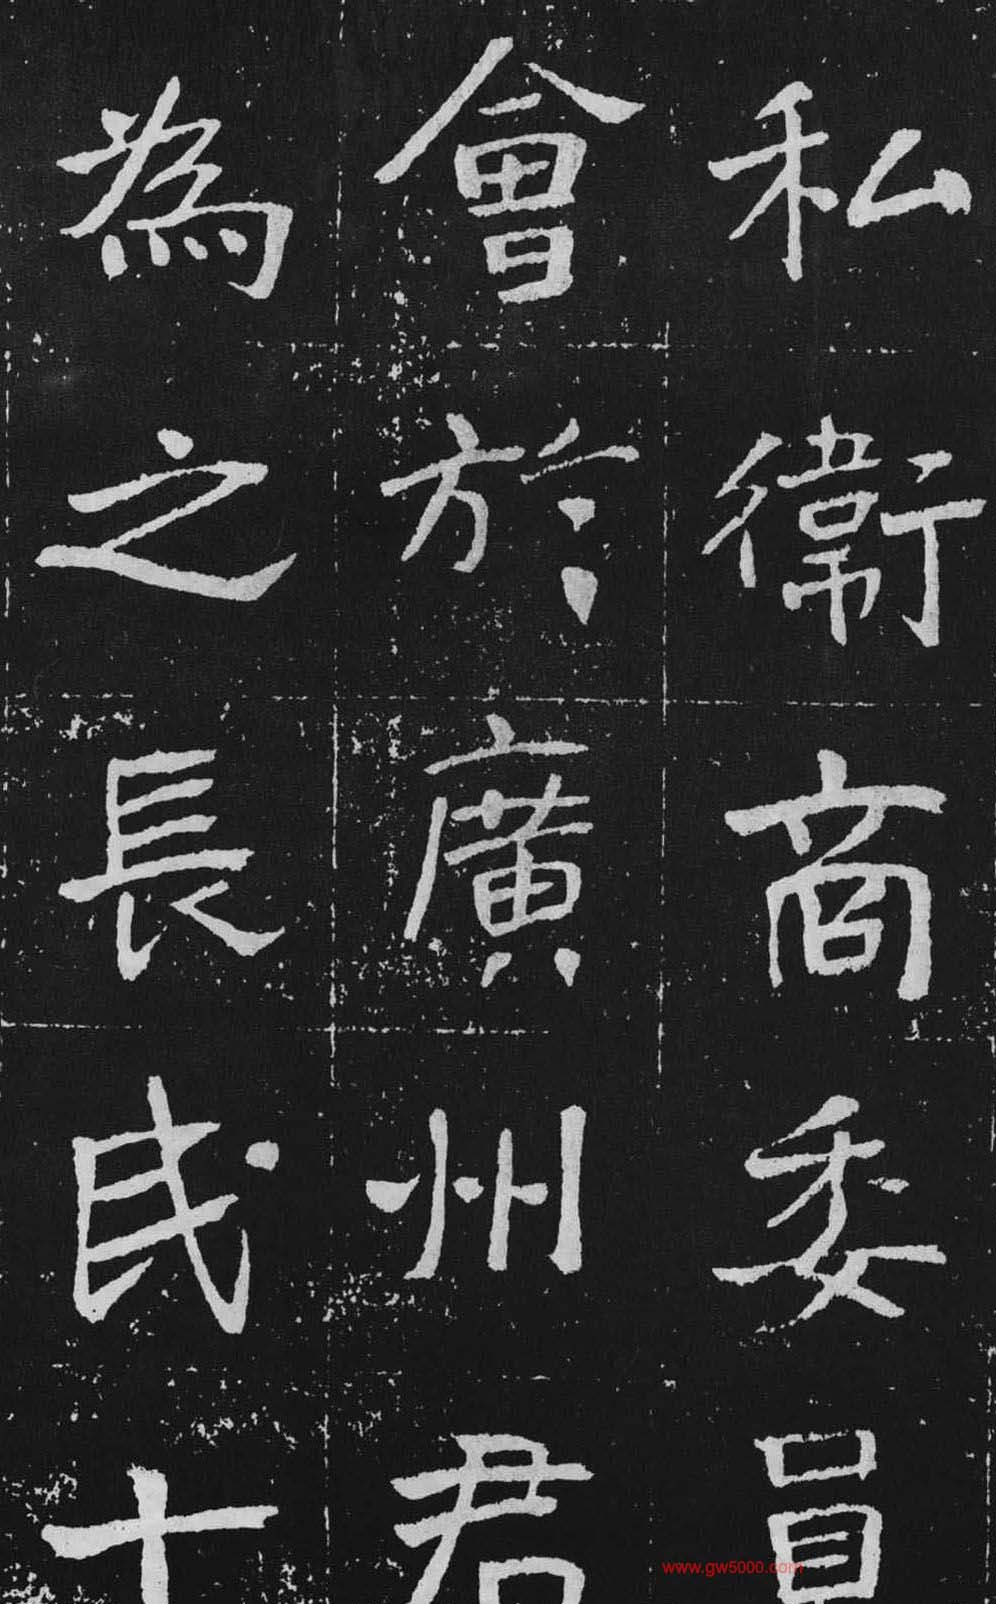 私衛商委員
會於廣州君
為之長民十
www.gw5000.com